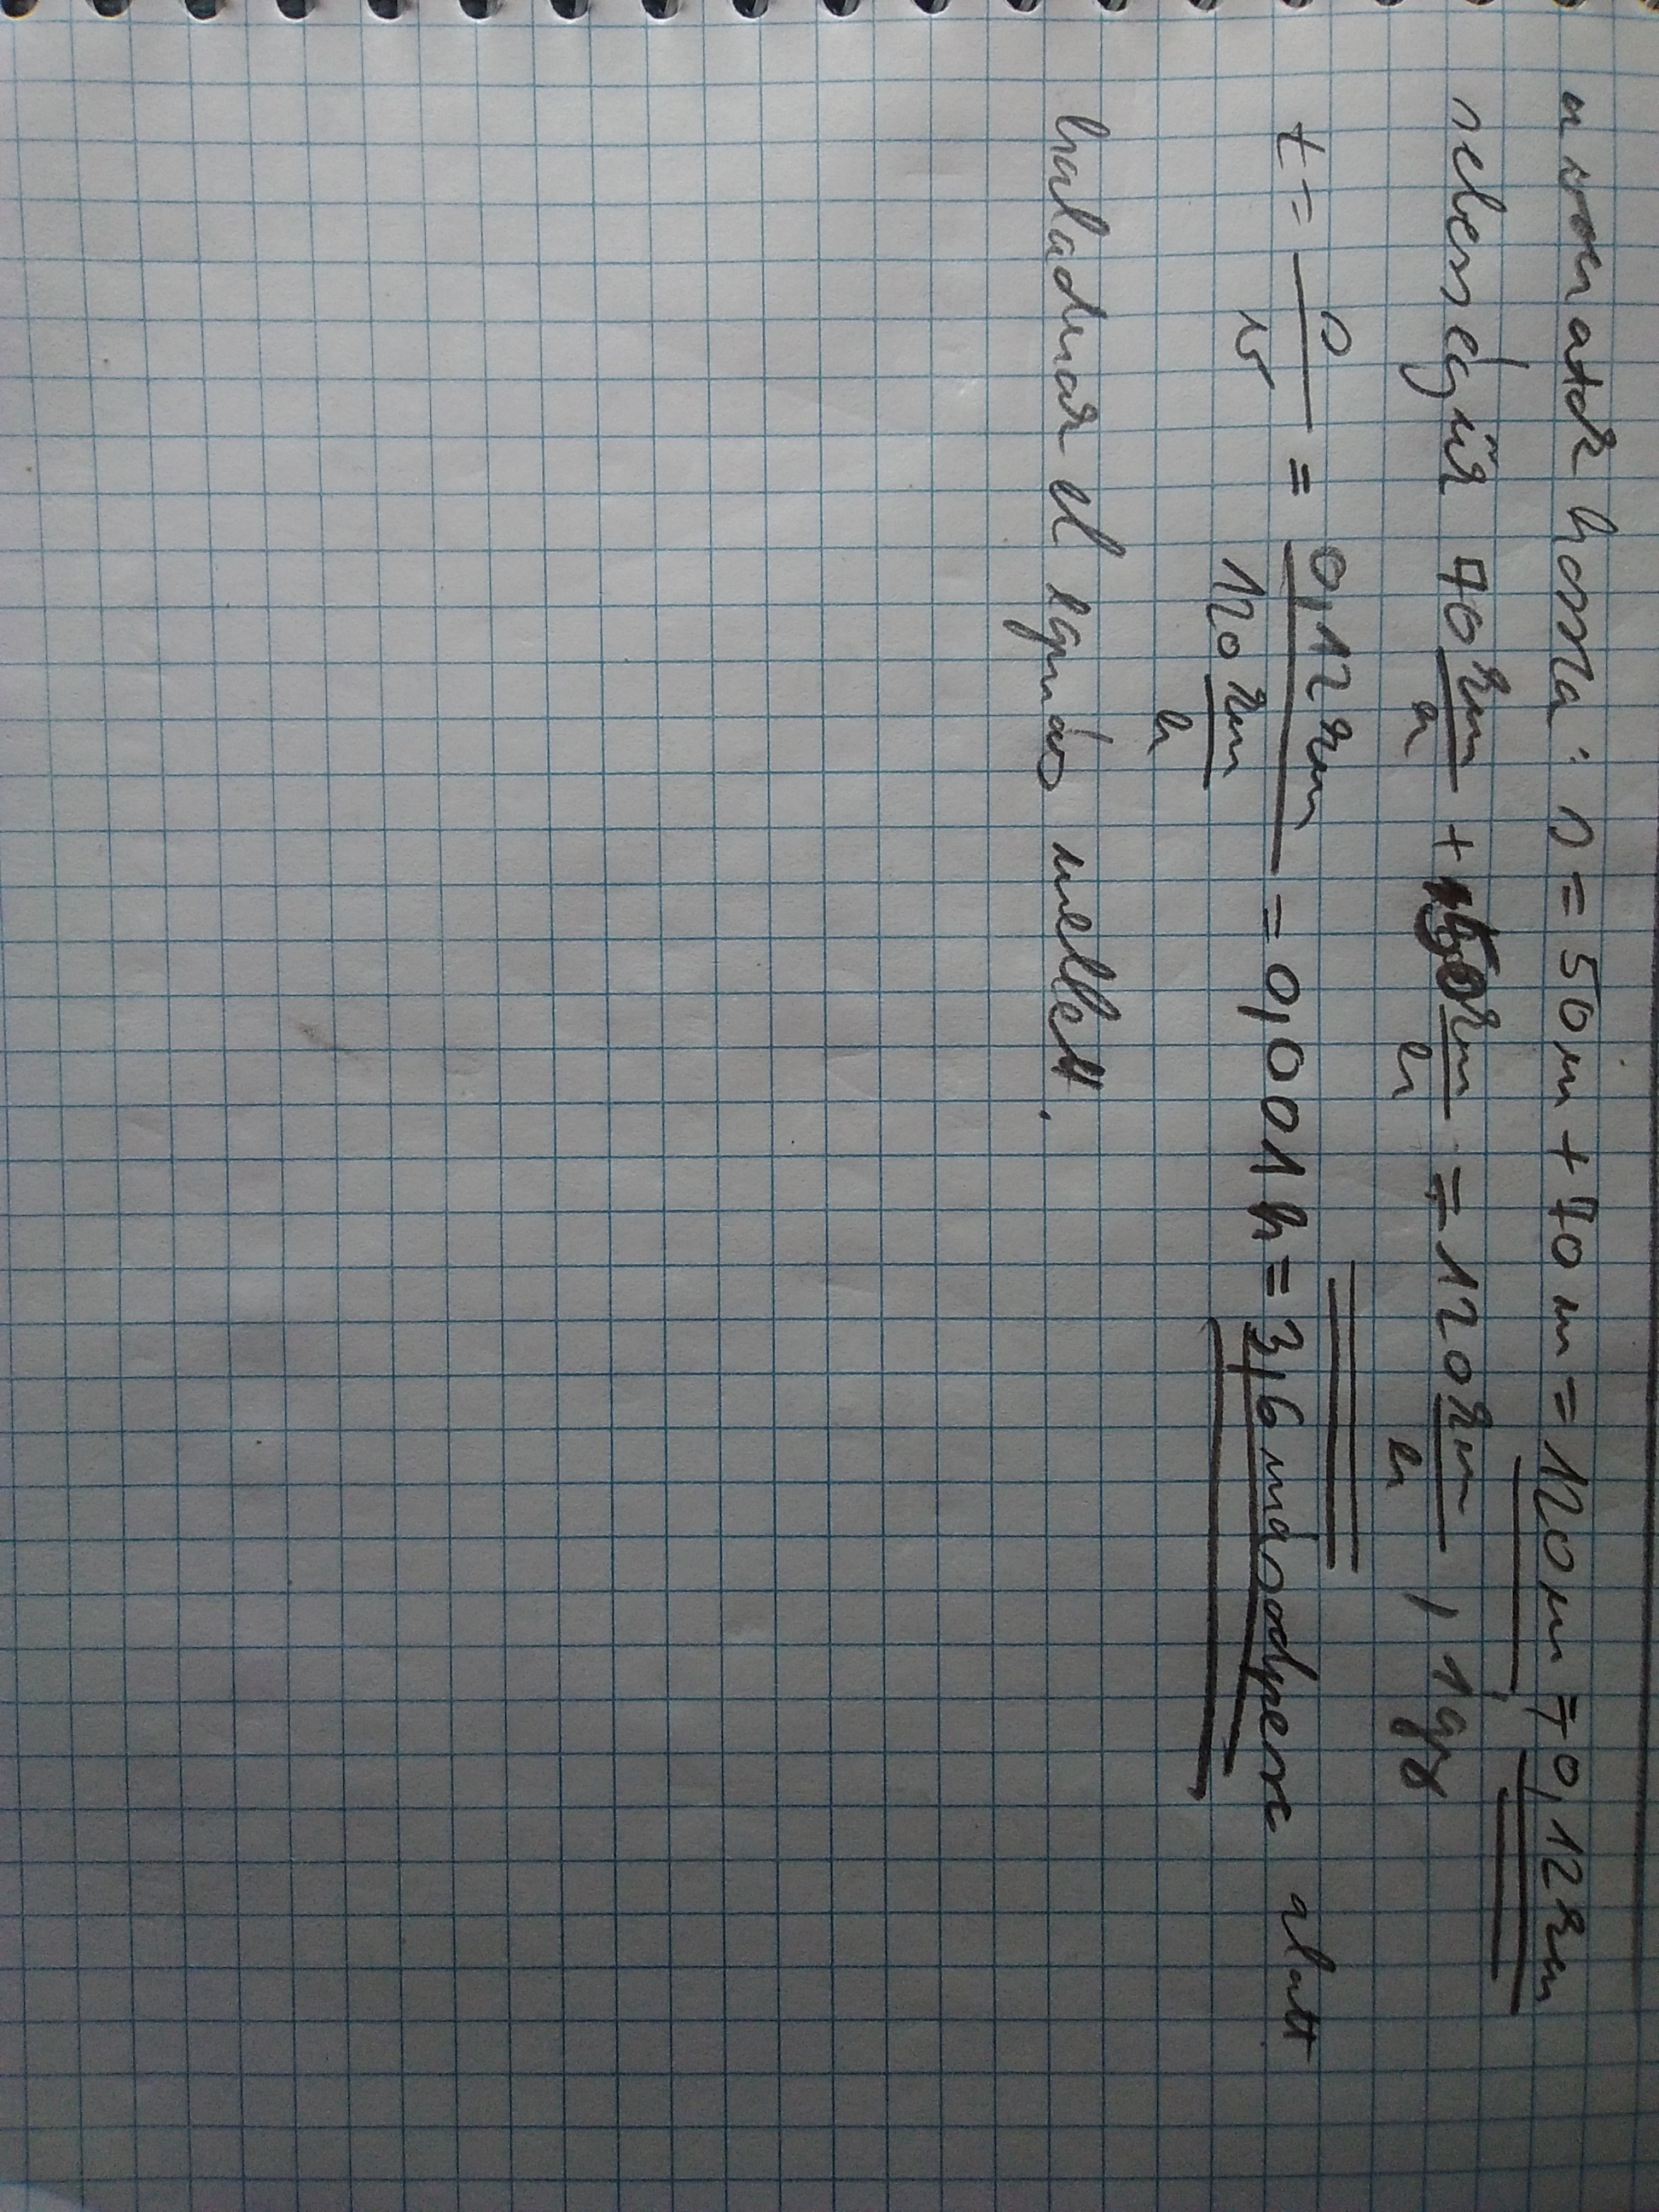 a vonatok hossza: s = 50 m + 70 m = 120 m = 0,12 km
sebességük 70 km/h + 50 km/h = 120 km/h, így
t = s/v = 0,12 km / 120 km/h = 0,001 h = 3,6 másodperc alatt
haladnak el egymás mellett.